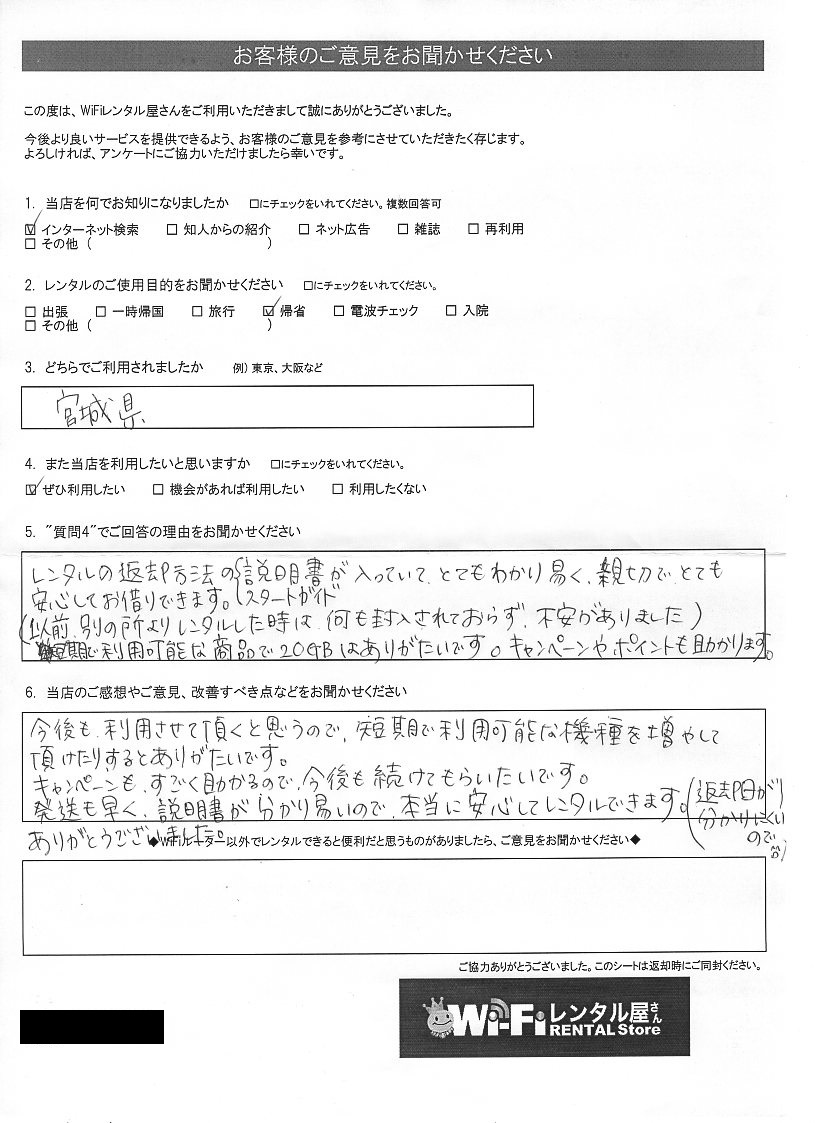 お客様のご意見をお聞かせください
この度は、WiFiレンタル屋さんをご利用いただきまして誠にありがとうございました。
今後より良いサービスを提供できるよう、お客様のご意見を参考にさせていただきたく存じます。
よろしければ、アンケートにご協力いただけましたら幸いです。
1. 当店を何でお知りになりましたか □にチェックをいれてください。複数回答可
☑ インターネット検索 □ 知人からの紹介 □ ネット広告 □ 雑誌 □ 再利用
□ その他 ( )
2. レンタルのご使用目的をお聞かせください □にチェックをいれてください。
□ 出張 □ 一時帰国 □ 旅行 ☑ 帰省 □ 電波チェック □ 入院
□ その他 ( )
3. どちらでご利用されましたか 例) 東京、大阪など
宮城県
4. また当店を利用したいと思いますか □にチェックをいれてください。
☑ ぜひ利用したい □ 機会があれば利用したい □ 利用したくない
5. "質問4"でご回答の理由をお聞かせください
レンタルの返却方法の説明書が入っていて、とてもわかり易く、親切でとても
安心してお借りできます。(スタートガイド
(以前、別の所よりレンタルした時は、何も封入されておらず、不安がありました)
短期で利用可能な商品で20GBはありがたいです。キャンペーンやポイントも助かります。
6. 当店のご感想やご意見、改善すべき点などをお聞かせください
今後も、利用させて頂くと思うので、短期で利用可能な機種を増やして
頂けたりするとありがたいです。
キャンペーンも、すごく助かるので、今後も続けてもらいたいです。
発送も早く、説明書が分かり易いので、本当に安心してレンタルできます。(返却日が
分かりにくい
ので
ありがとうございました。
◆WiFiルーター以外でレンタルできると便利だと思うものがありましたら、ご意見をお聞かせください◆
ご協力ありがとうございました。このシートは返却時にご同封ください。
Wi-Fiレンタル屋さん
RENTAL Store